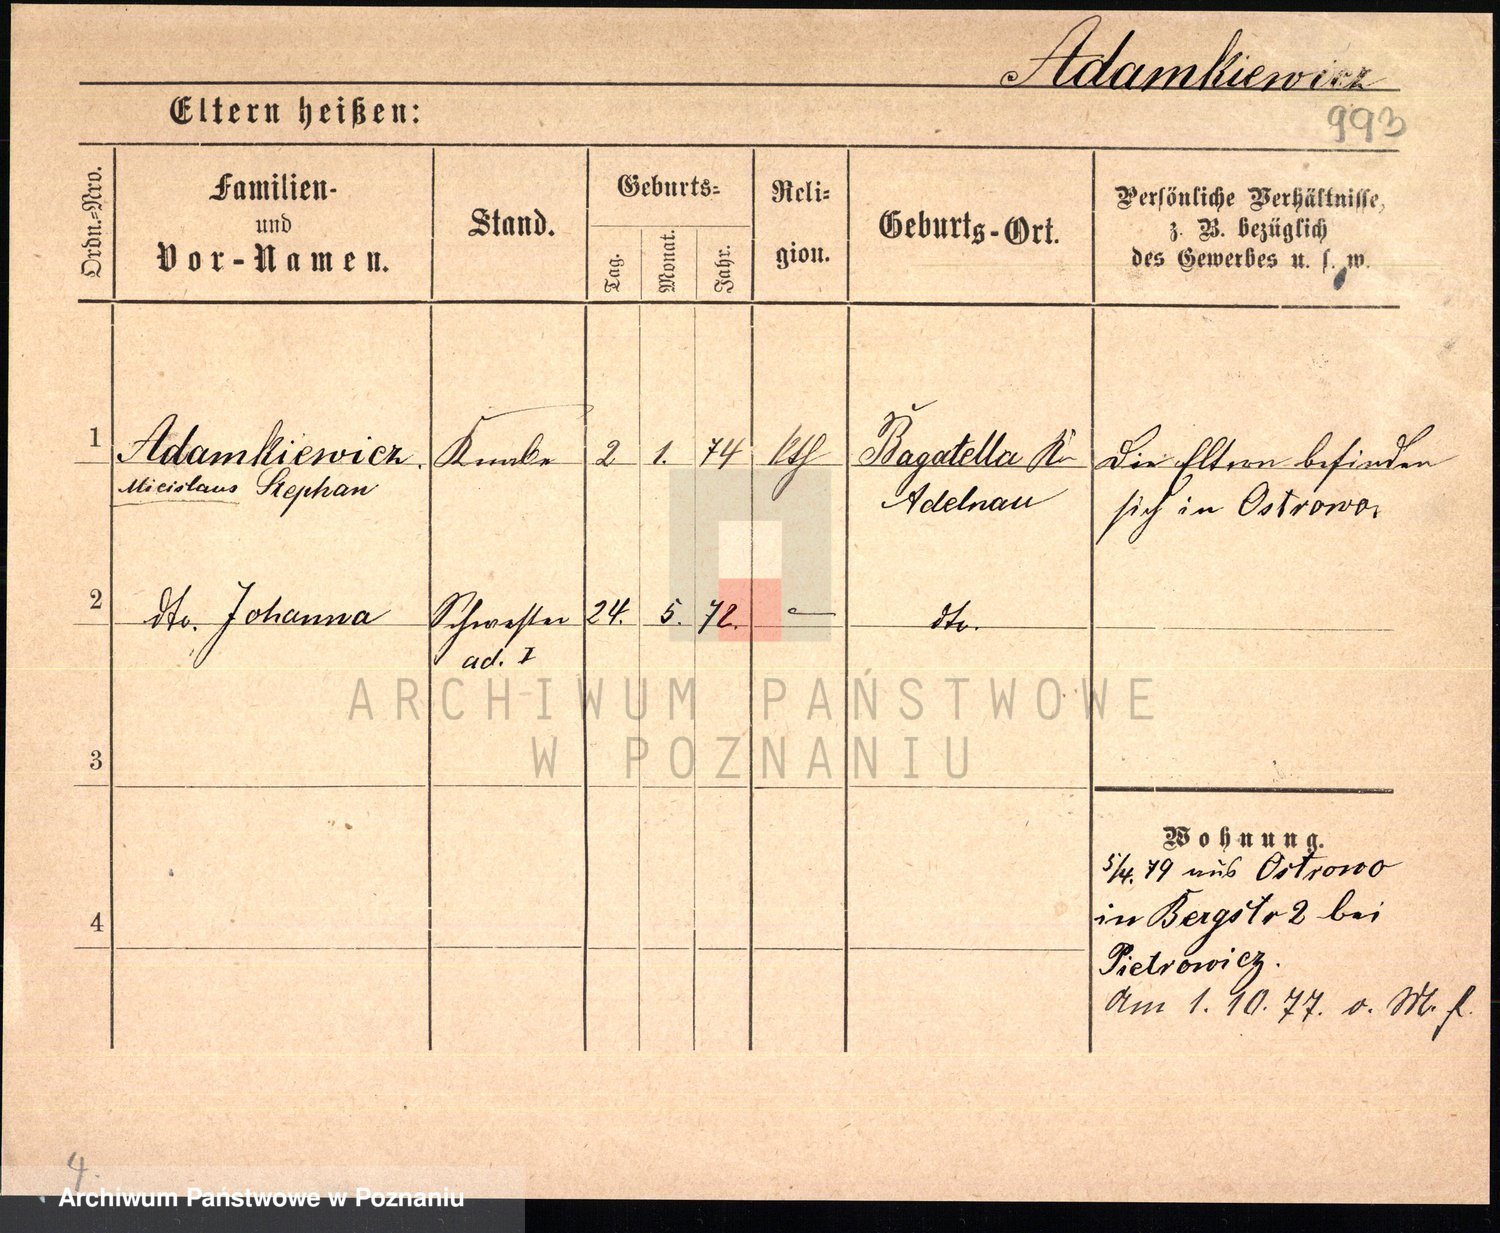 Adamkiewicz
993
Eltern heißen:
Ordn.=Nro.
Familien-
und
Vor-Namen.
Stand.
Geburts=
Tag.
Monat.
Jahr.
Reli=
gion.
Geburts-Ort.
Persönliche Verhältnisse,
z. B. bezüglich
des Gewerbes u. s. w.
1 Adamkiewicz. Knabe 2 1. 74 kth Bagatella Kr Die Eltern befinden
Miecislaus Stephan Adelnau sich in Ostrowo.
2 dto. Johanna Schwester 24. 5. 72. dto.
ad. I
ARCHIWUM PAŃSTWOWE
W POZNANIU
3
Wohnung.
5/4. 79 aus Ostrowo
4 in Bergstr 2 bei
Pietrowicz.
Am 1. 10. 77. v. M. f.
4.
Archiwum Państwowe w Poznaniu